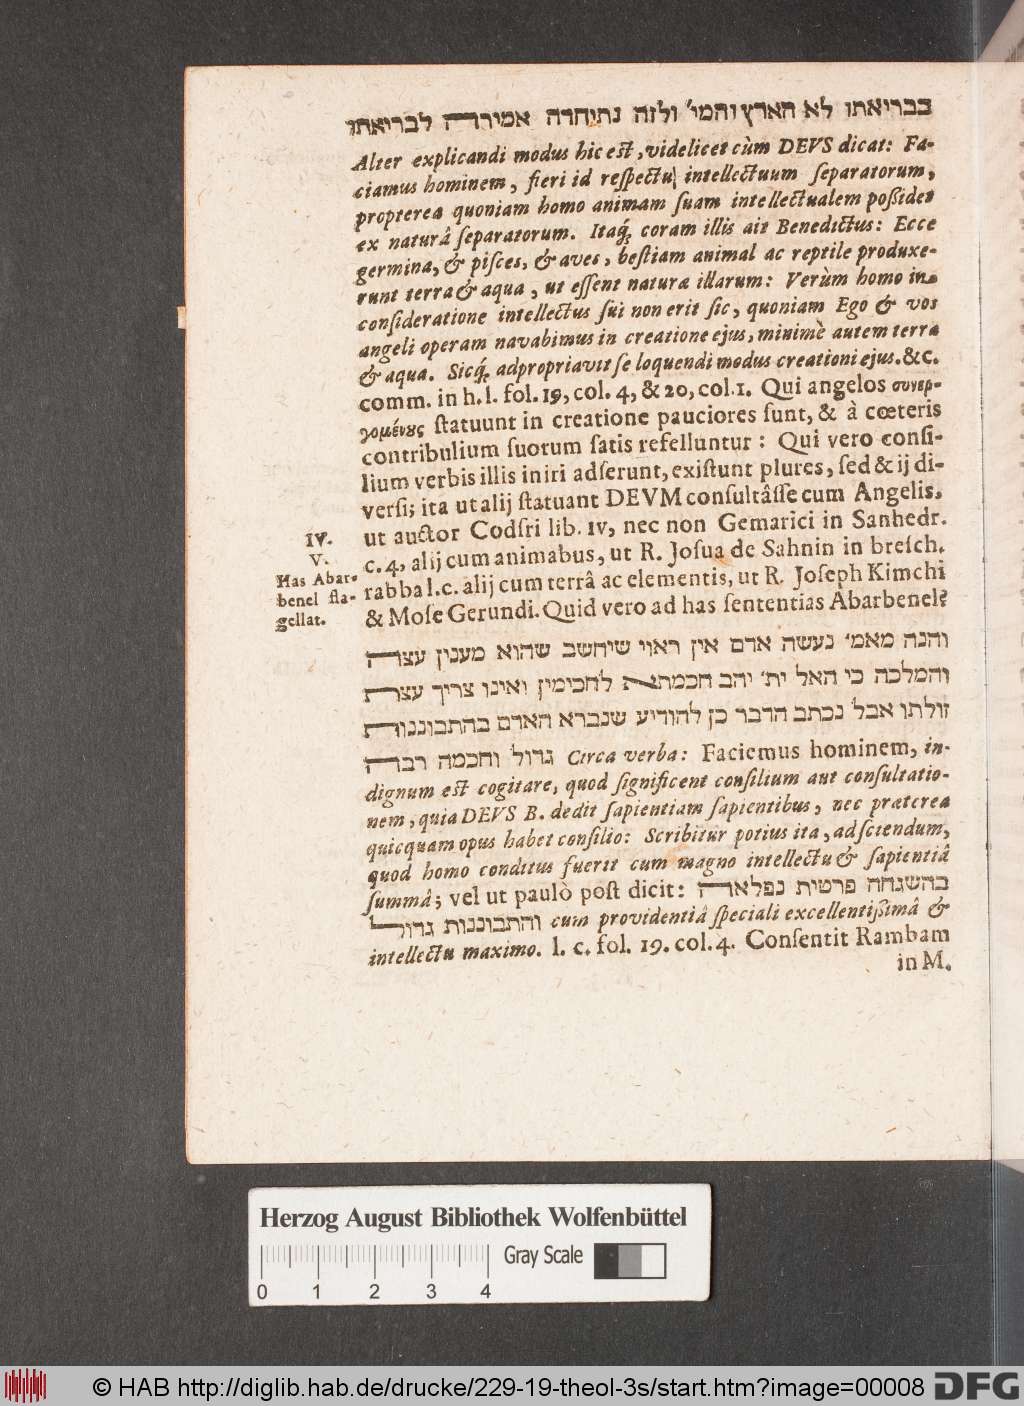 בבריאתו לא הארץ והמי׳ ולזה נתיחדה אמירה לבריאתו
Alter explicandi modus hic est, videlicet cùm DEUS dicat: Fa-
ciamus hominem, fieri id respectu intellectuum separatorum,
propterea quoniam homo animam suam intellectualem possidet
ex naturâ separatorum. Itaq; coram illis ait Benedictus: Ecce
germina, & pisces, & aves, bestiam animal ac reptile produxe-
runt terra & aqua, ut essent naturæ illarum: Verùm homo in
consideratione intellectus sui non erit sic, quoniam Ego & vos
angeli operam navabimus in creatione ejus, minimè autem terra
& aqua. Sicq; adpropriavit se loquendi modus creationi ejus. &c.
comm. in h. l. fol. 19, col. 4, & 20, col. 1. Qui angelos συνερ-
γομένους statuunt in creatione pauciores sunt, & à cœteris
contribulium suorum satis refelluntur: Qui vero consi-
lium verbis illis iniri adserunt, existunt plures, sed & ij di-
versi; ita ut alij statuant DEVM consultâsse cum Angelis,
ut auctor Codsri lib. IV, nec non Gemarici in Sanhedr.
c. 4, alij cum animabus, ut R. Josua de Sahnin in bresch.
rabba l. c. alij cum terrâ ac elementis, ut R. Joseph Kimchi
& Mose Gerundi. Quid vero ad has sententias Abarbenel?
IV.
V.
Has Abar-
benel fla-
gellat.
והנה מאמ׳ נעשה אדם אין ראוי שיחשב שהוא מענין עצה
והמלכה כי האל ית׳ יהב חכמתא לחכימין ואינו צריך עצת
זולתו אבל נכתב הדבר כן להודיע שנברא האדם בהתבוננות
גדול וחכמה רבה Circa verba: Faciemus hominem, in-
dignum est cogitare, quod significent consilium aut consultatio-
nem, quia DEUS B. dedit sapientiam sapientibus, nec præterea
quicquam opus habet consilio: Scribitur potius ita, ad sciendum,
quod homo conditus fuerit cum magno intellectu & sapientiâ
summâ; vel ut paulò post dicit: בהשגחה פרטית נפלאה
והתבוננות גדול cum providentiâ speciali excellentissimâ &
intellectu maximo. l. c. fol. 19. col. 4. Consentit Rambam
in M.
Herzog August Bibliothek Wolfenbüttel
Gray Scale
0 1 2 3 4
© HAB http://diglib.hab.de/drucke/229-19-theol-3s/start.htm?image=00008
DFG